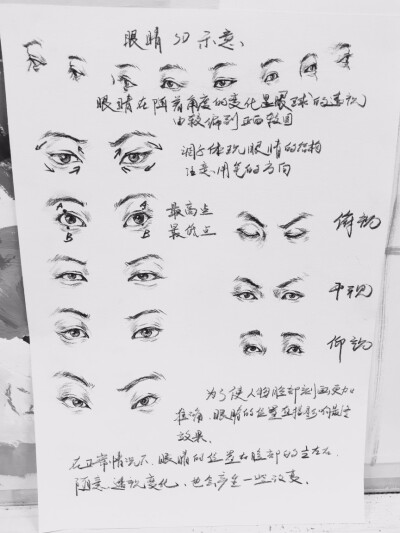 眼睛3D示意、
眼睛在随着角度的变化是眼球的
由较偏到正面较圆
调子体现眼睛的结构
注意用笔的方向
A A
B B
最高点
最低点
俯视
平视
仰视
为了使人物脸部刻画更加
准确、眼睛的位置直接影响最终
效果.
在正常情况下.眼睛的位置在脸部的
随意.透视变化.也会产生一些改变.